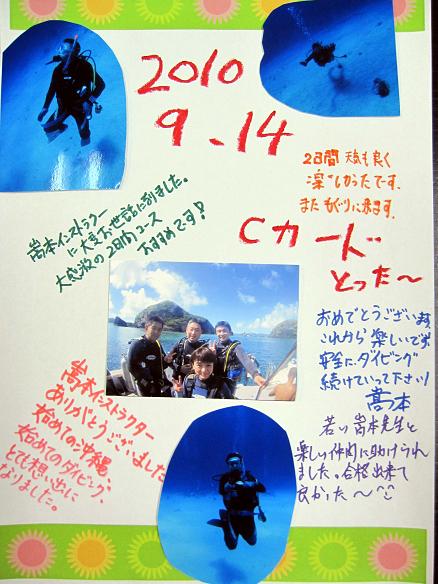 2010
9.14
2日間 天気も良く
楽しかったです。
また もぐりに来ます。
嵩本インストラクター
に大変お世話に到りました。
大感激の2日間コース
おすすめです!
Cカード
とった〜
おめでとうございます
これから 楽しいです
安全にダイビング
続けていって下さい!
嵩本
嵩本インストラクター
ありがとうございました
始めての沖縄、
始めてのダイビング、
とても想い出に
なりました。
若い嵩本先生と
楽しい仲間に助けられ
ました。合格出来て
良かった〜